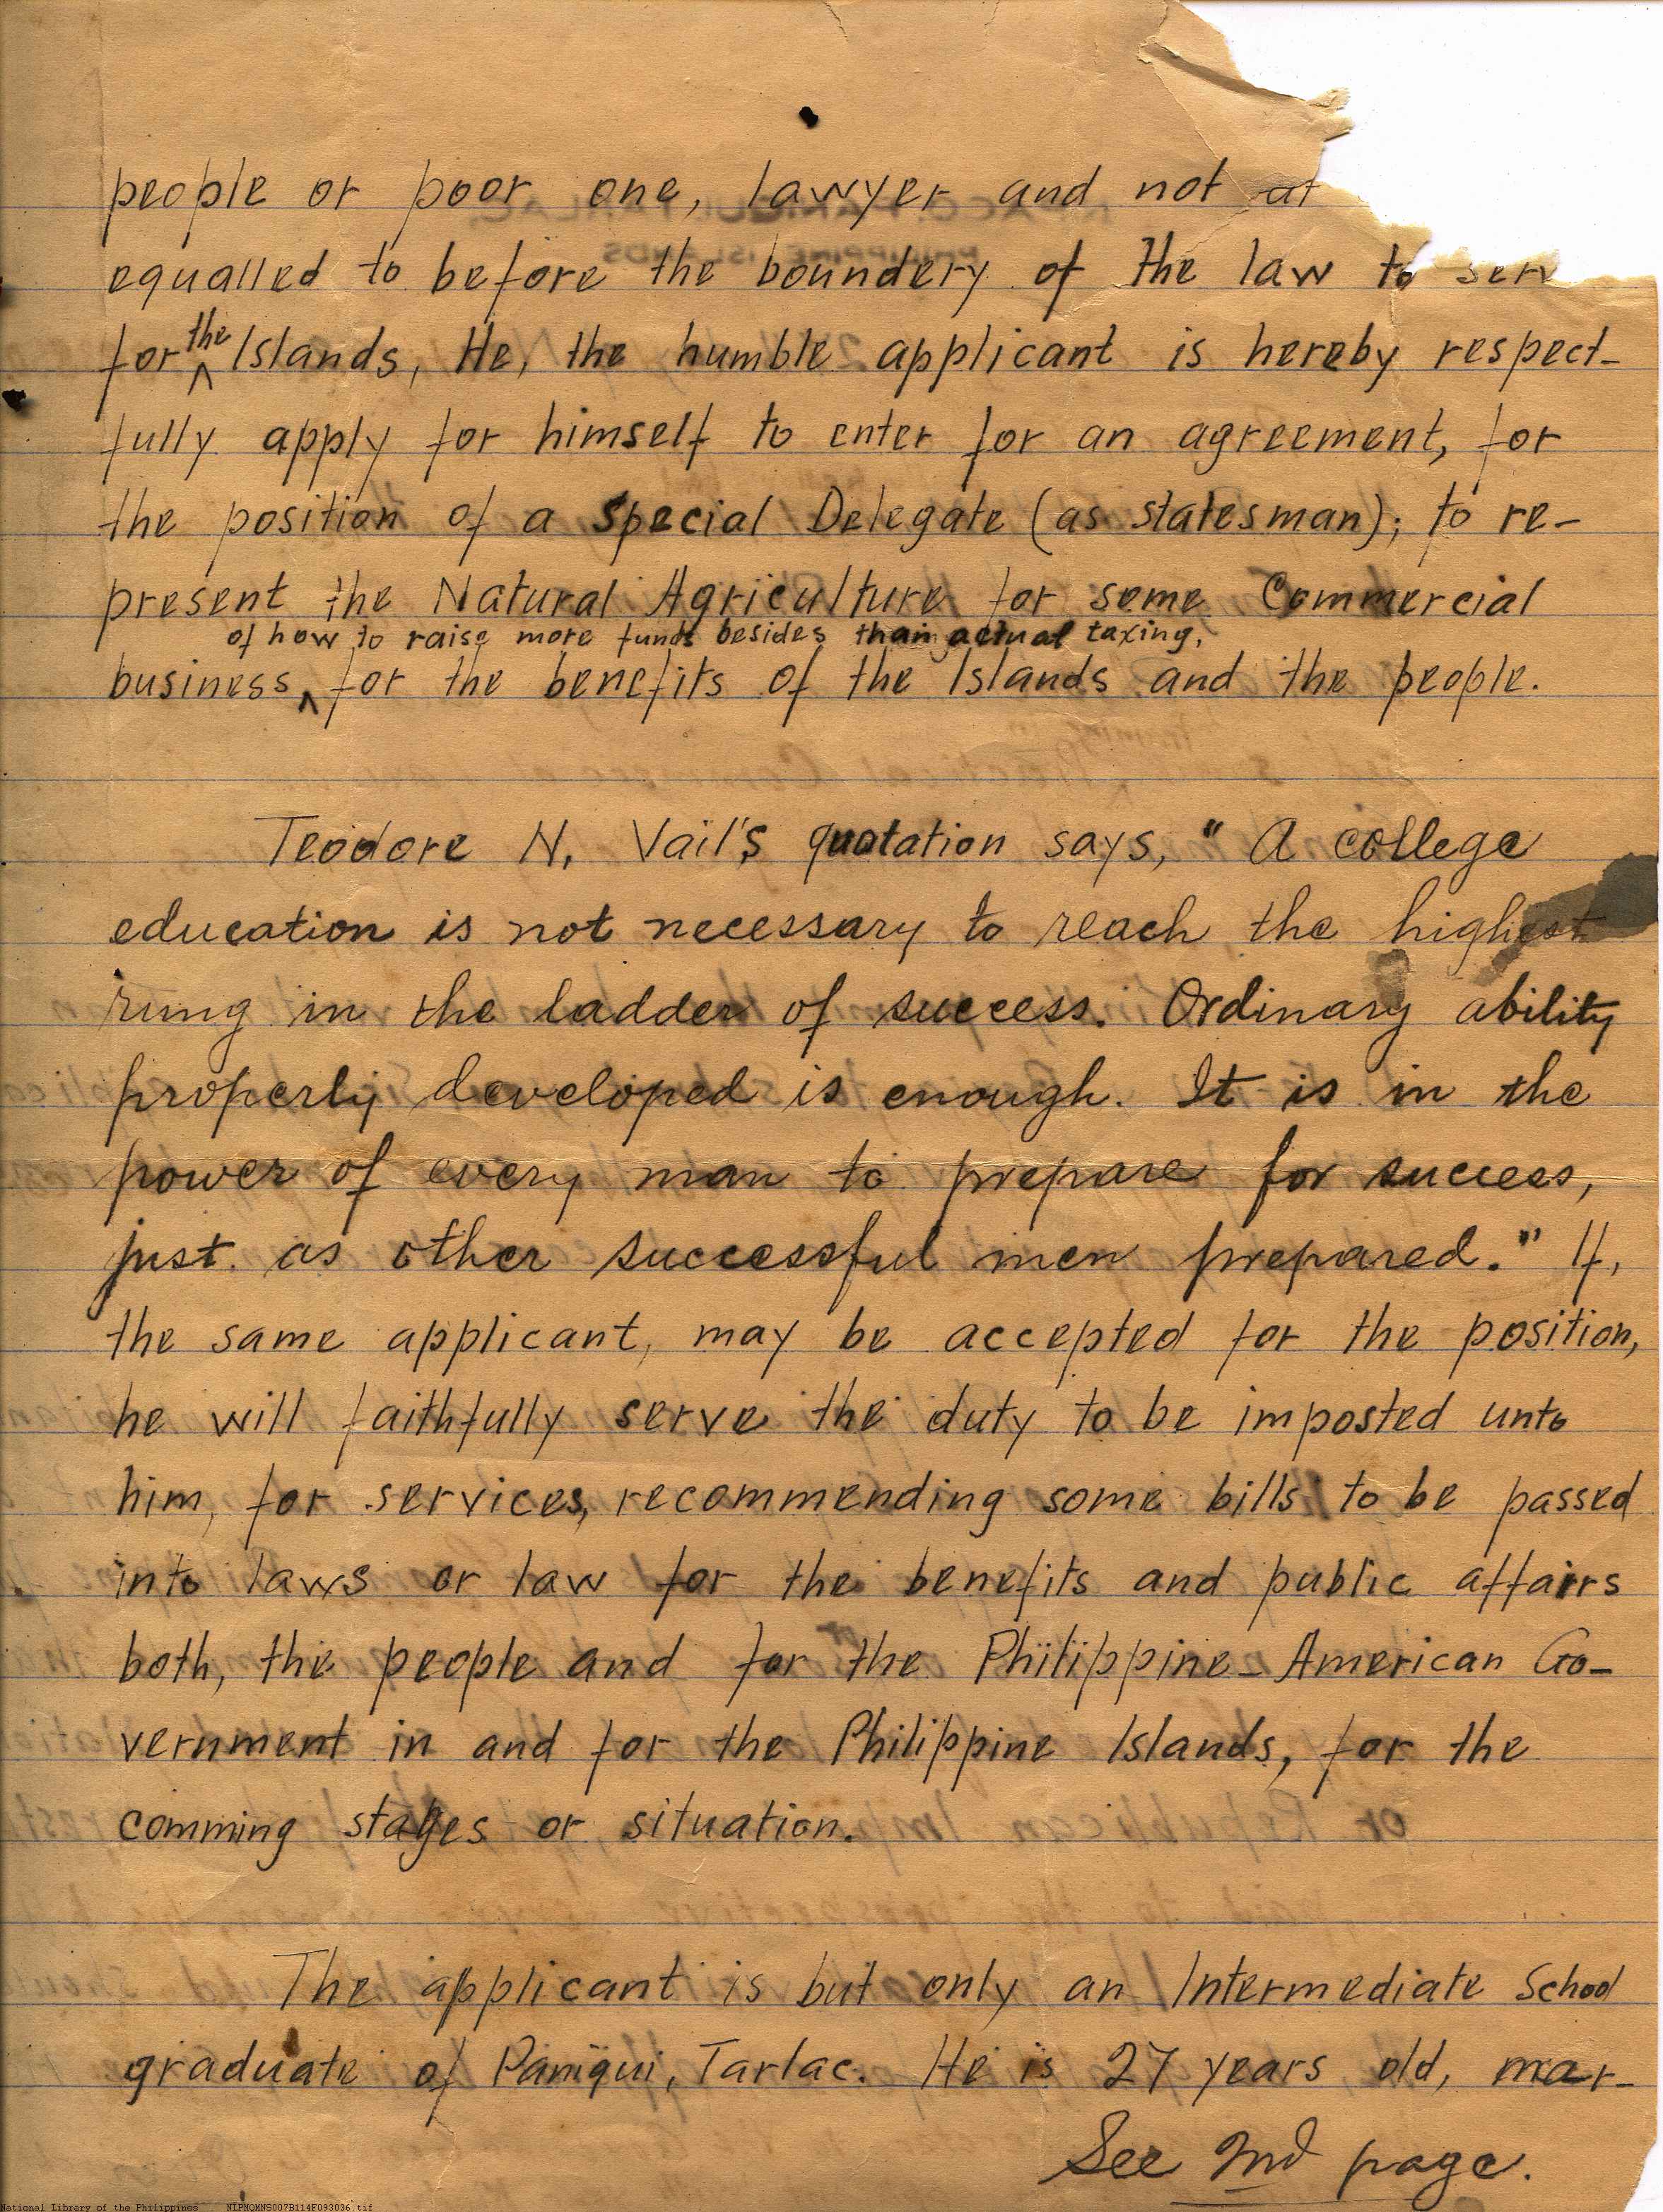 people or poor one, lawyer and not at
equalled to before the boundery of the law to serv
for the Islands, He, the humble applicant is hereby respect-
fully apply for himself to enter for an agreement, for
the position of a special Delegate (as statesman); to re-
present the Natural Agriculture for some Commercial
of how to raise more funds besides than actual taxing,
business, for the benefits of the Islands and the people.
Teodore N. Vail's quotation says, "A college
education is not necessary to reach the highest
rung in the ladder of success. Ordinary ability
properly developed is enough. It is in the
power of every man to prepare for success,
just as other successful men prepared." If,
the same applicant, may be accepted for the position,
he will faithfully serve the duty to be imposted unto
him, for services, recommending some bills to be passed
into laws or law for the benefits and public affairs
both, the people and for the Philippine-American Go-
vernment in and for the Philippine Islands, for the
comming stages or situation.
The applicant is but only an Intermediate School
graduate of Paniqui, Tarlac. He is 27 years old, mar-
See 2nd page.
National Library of the Philippines NLPMQMNS007B114F093036.tif